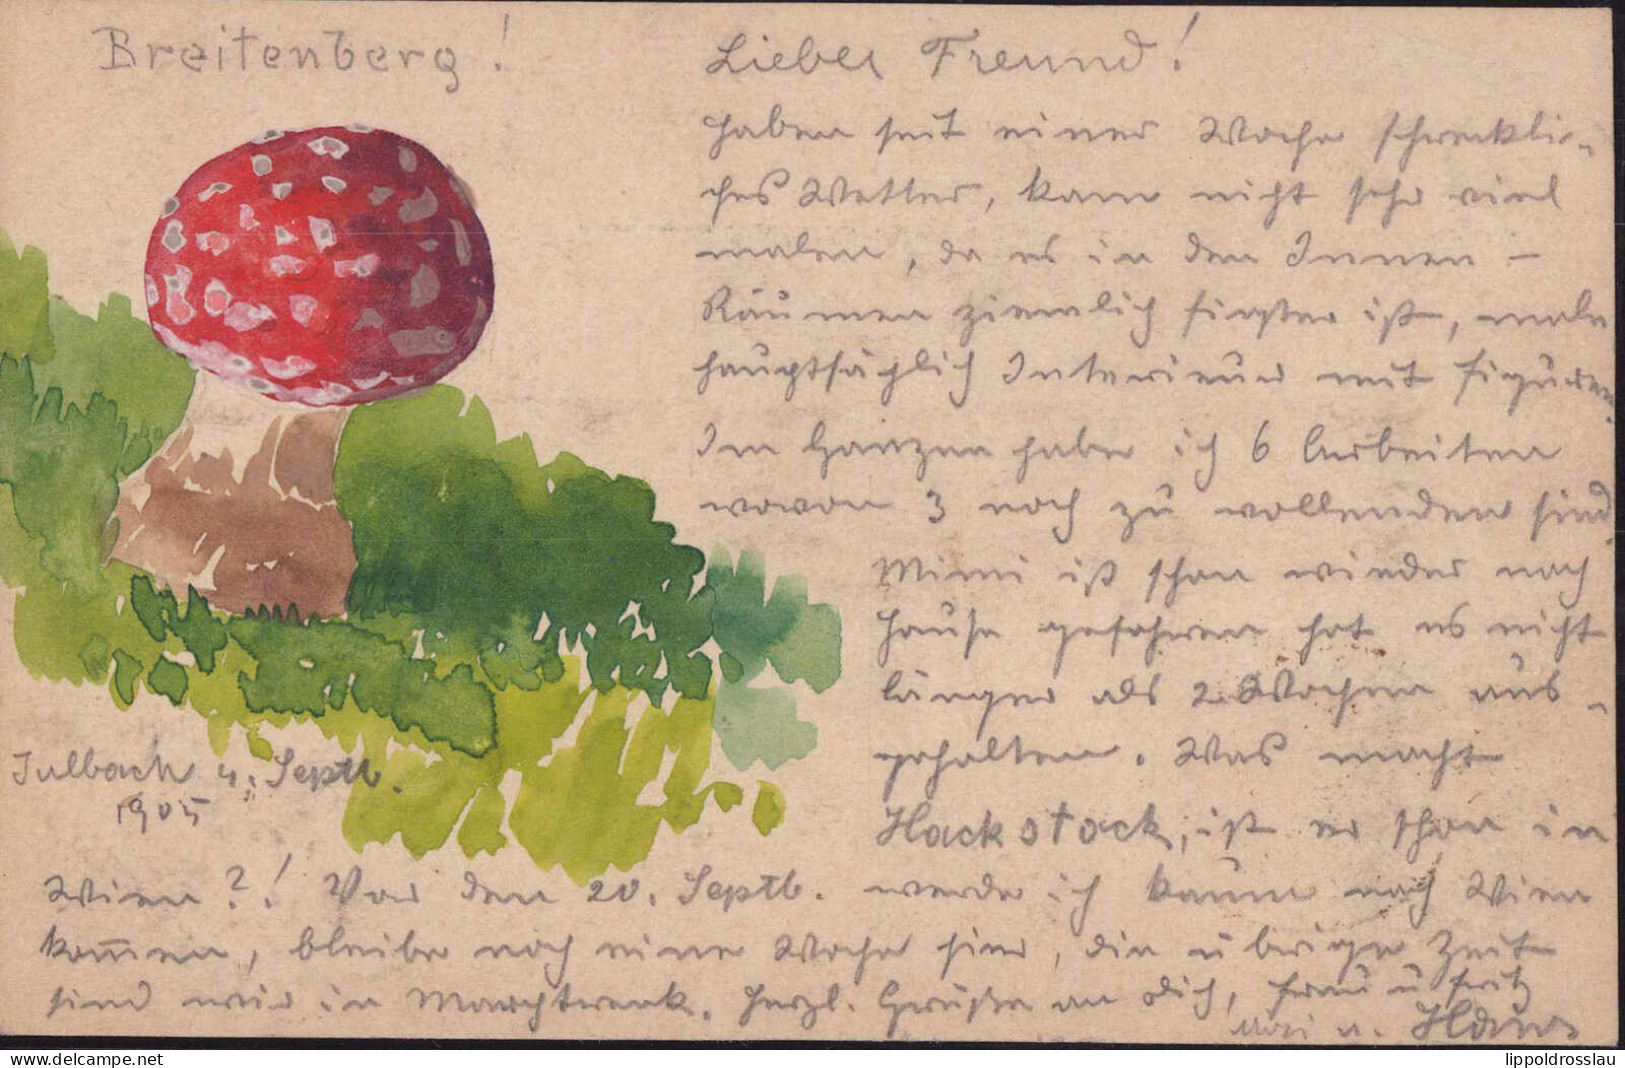 Breitenberg!
Lieber Freund!
Haben seit einer Woche schreckli-
ches Wetter, kann nicht sehr viel
malen, da es in den Innen-
Räumen ziemlich finster ist, male
hauptsächlich Interieur mit Figuren.
Im Ganzen habe ich 6 Arbeiten
wovon 3 noch zu vollenden sind.
Mimi ist schon wieder nach
Hause gefahren hat es nicht
länger als 2 Wochen aus-
gehalten. Was macht
Hackstock, ist er schon in
Wien?! Vor den 20. Septb. werde ich kaum nach Wien
kom̄en, bleibe noch eine Woche hier, die übrige Zeit
sind wir in Marchtrenk. Herzl. Grüße an Dich, Frau u Fritz
u. Hans
Julbach 4. Septb.
1905
lippoldrosslau